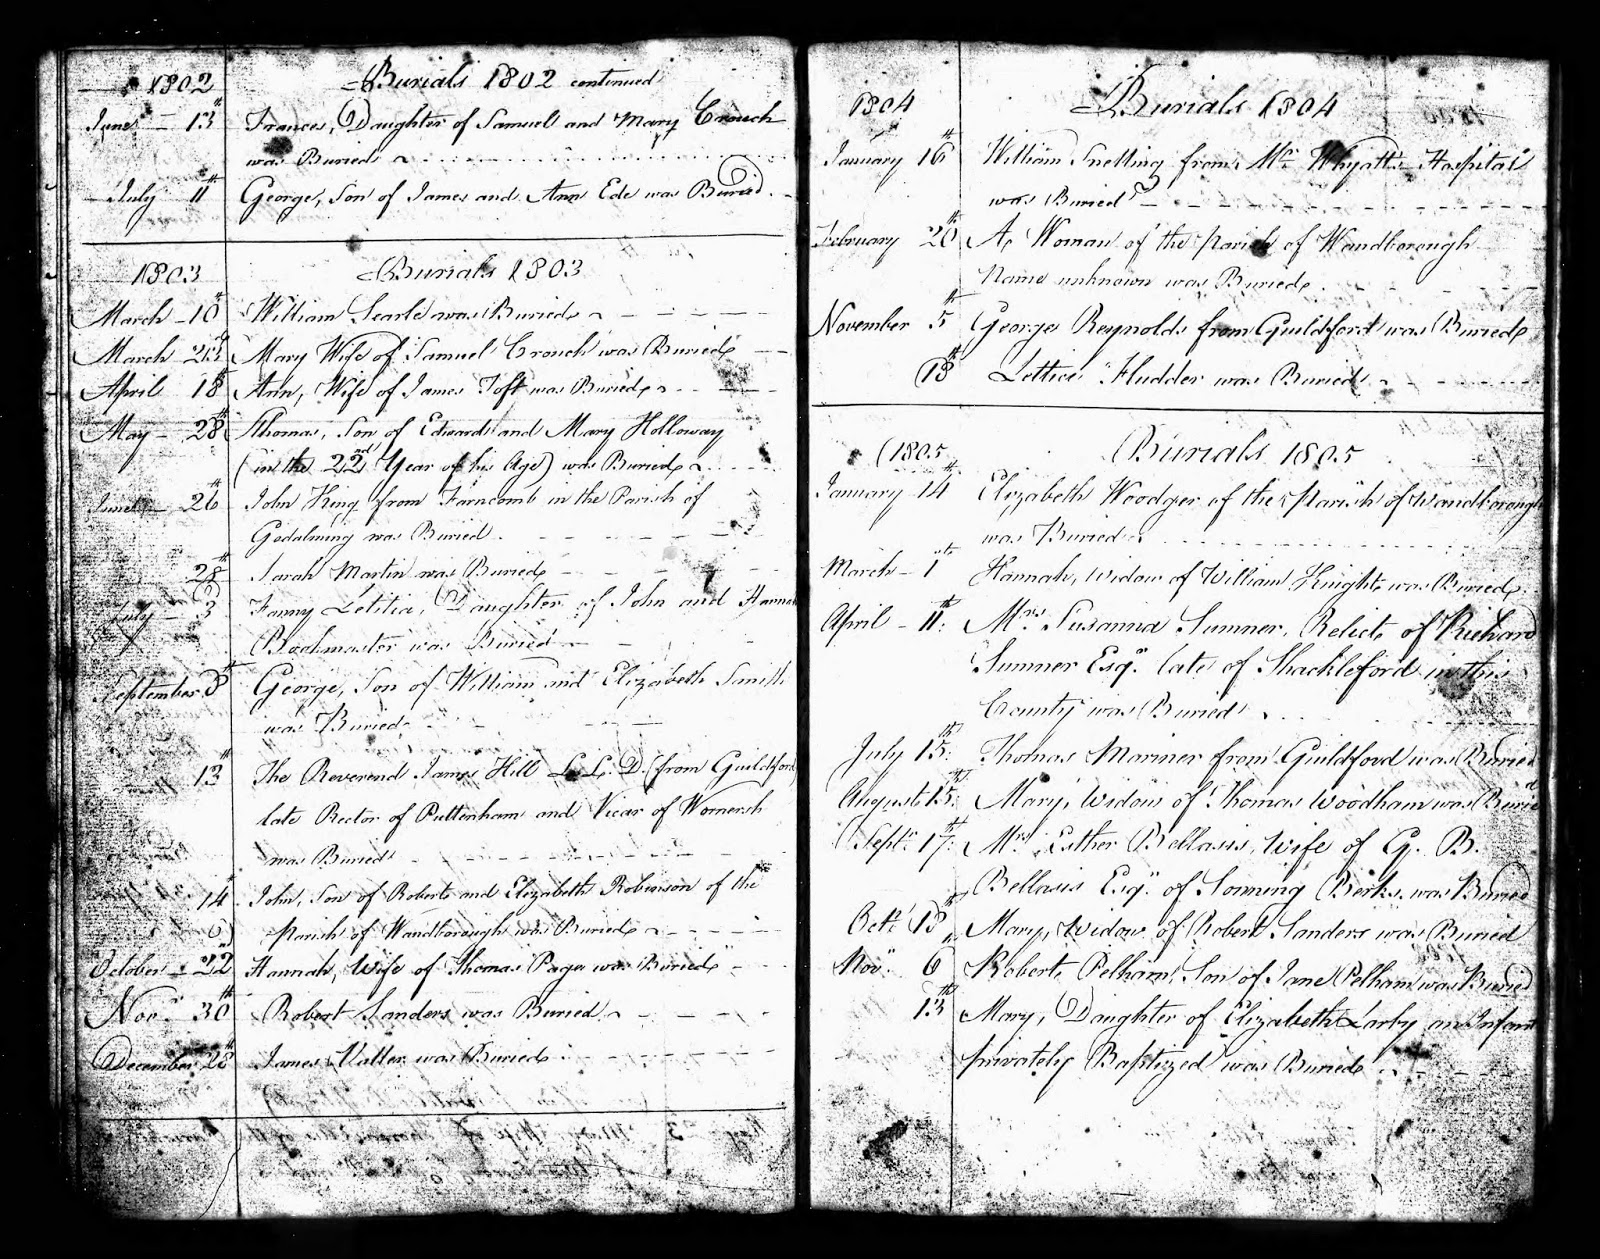 1802 Burials 1802 continued
June 13th Frances, Daughter of Samuel and Mary Crouch
was Buried
July 11th George, Son of James and Ann Ede was Buried.
1803 Burials 1803
March 10th William Searle was Buried
March 23d Mary Wife of Samuel Crouch was Buried
April 18th Ann, Wife of James Toft was Buried
May 28th Thomas, Son of Edward and Mary Holloway
(in the 22nd Year of his Age) was Buried
June 26th John King from Farncomb in the Parish of
Godalming was Buried
28th Sarah Martin was Buried
July 3 Fanny Letitia, Daughter of John and Hannah
Bookmaster was Buried
September 8th George, Son of William and Elizabeth Smith
was Buried
13th The Reverend James Hill L. L. D. (from Guildford
late Rector of Puttenham and Vicar of Womersh
was Buried
14th John, Son of Robert and Elizabeth Robinson of the
parish of Wandborough was Buried
October 22nd Hannah, Wife of Thomas Page was Buried
Novr 30th Robert Sanders was Buried
December 28th James Valler was Buried
1804 Burials 1804
January 16th William Snelling from Mr Whyatt's Hospital
was Buried
February 20th A Woman of the parish of Wandborough
Name unknown was Buried
November 5th George Reynolds from Guildford was Buried
18th Lettice Fludder was Buried
1805 Burials 1805
January 14th Elizabeth Woodger of the Parish of Wandborough
was Buried
March 1st Hannah, widow of William Knight, was Buried
April 11th Mrs Susanna Sumner, Relict of Richard
Sumner Esqr late of Shackleford in this
County was Buried
July 15th Thomas Mariner from Guildford was Buried
August 15th Mary, Widow of Thomas Woodham was Buried
Septr 17th Mrs Esther Bellasis, Wife of G. B.
Bellasis Esqr of Sonning Berks. was Buried
Octr 13th Mary, Widow of Robert Sanders was Buried
Novr 6th Robert Pelham, Son of Jane Pelham was Buried
13th Mary, Daughter of Elizabeth Larby an Infant
privately Baptized was Buried